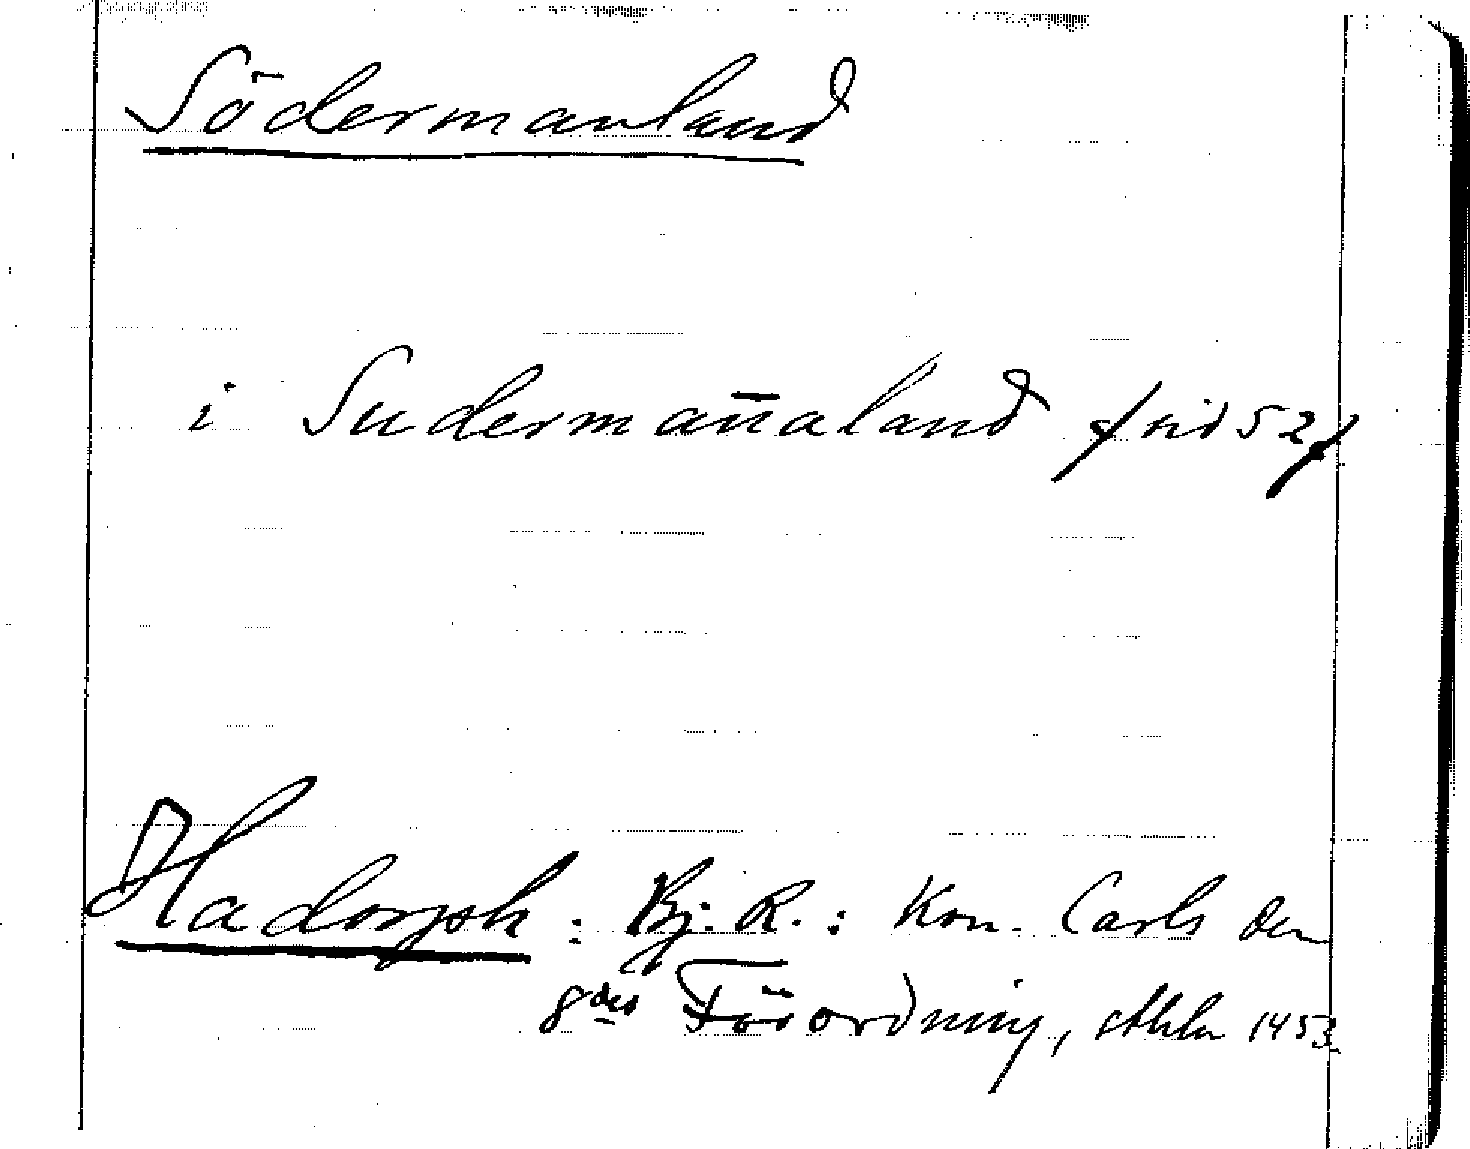 Södermanland
i Suderman̄aland /sid 52/
Hadorph: Bj. R.: Kon. Carls den
8des Förordning, Sthlm 1453